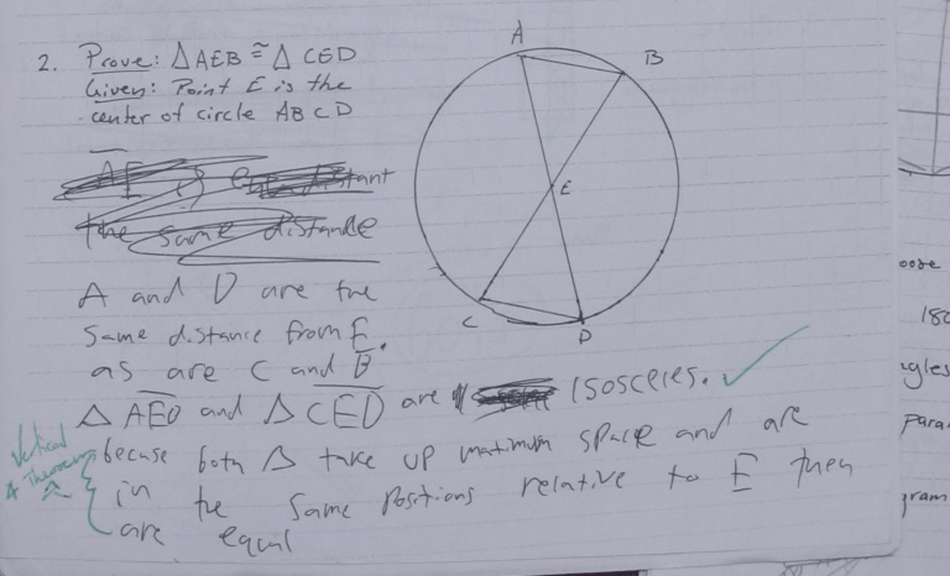 2. Prove: △AEB ≅ △CED
Given: Point E is the
center of circle ABCD
A
B
E
C
D
the same distance
A and D are the
same distance from E.
as are C and B
△AED and △CED are Isosceles. ✓
becuse both △ take up maximum space and are
in the same positions relative to E then
are equal
Vertical
∡ Theorem
oose
180
ngles
para
gram